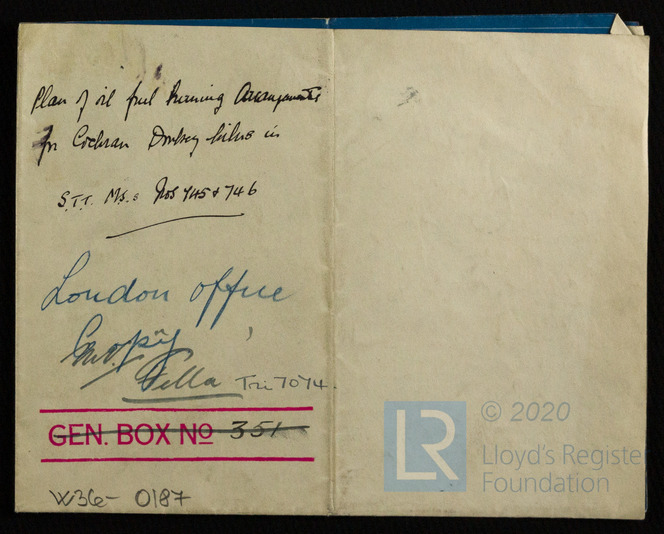 Plan of oil fuel Burning Arrangements
for Cochran Donkey boilers in
S.T.T. M.S.s Nos 745 & 746
London office
copy
M.V.
Fella Tri 7074.
GEN. BOX No 351
W36- 0187
LR
© 2020
Lloyd's Register
Foundation